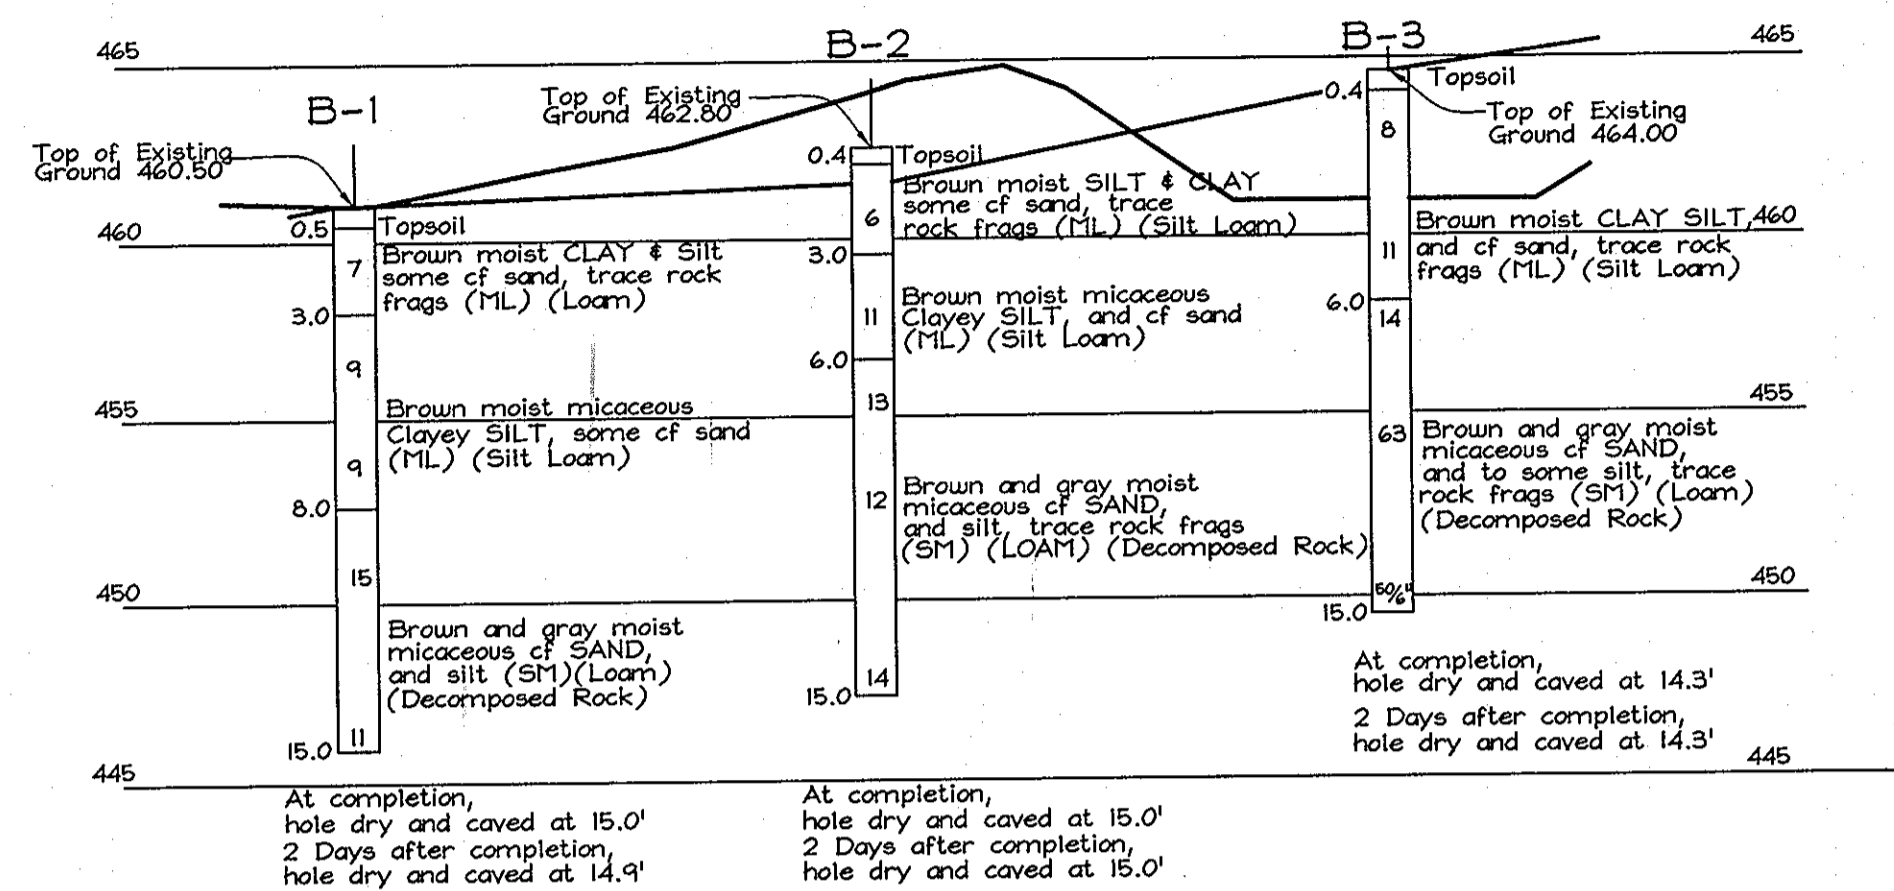 465
B-1
Top of Existing
Ground 460.50'
0.5
Topsoil
7
Brown moist CLAY & Silt
some cf sand, trace rock
frags (ML) (Loam)
3.0
9
Brown moist micaceous
Clayey SILT, some cf sand
(ML) (Silt Loam)
9
8.0
15
Brown and gray moist
micaceous cf SAND,
and silt (SM)(Loam)
(Decomposed Rock)
15.0
11
At completion,
hole dry and caved at 15.0'
2 Days after completion,
hole dry and caved at 14.9'
460
455
450
445
B-2
Top of Existing
Ground 462.80'
0.4
Topsoil
Brown moist SILT & CLAY
some cf sand, trace
rock frags (ML) (Silt Loam)
6
3.0
Brown moist micaceous
Clayey SILT, and cf sand
(ML) (Silt Loam)
11
6.0
13
12
Brown and gray moist
micaceous cf SAND,
and silt, trace rock frags
(SM) (LOAM) (Decomposed Rock)
14
15.0
At completion,
hole dry and caved at 15.0'
2 Days after completion,
hole dry and caved at 15.0'
B-3
465
Topsoil
0.4
Top of Existing
Ground 464.00'
8
Brown moist CLAY SILT,
and cf sand, trace rock
frags (ML) (Silt Loam)
460
11
6.0
14
455
63
Brown and gray moist
micaceous cf SAND,
and to some silt, trace
rock frags (SM) (Loam)
(Decomposed Rock)
450
50/6"
15.0
At completion,
hole dry and caved at 14.3'
2 Days after completion,
hole dry and caved at 14.3'
445